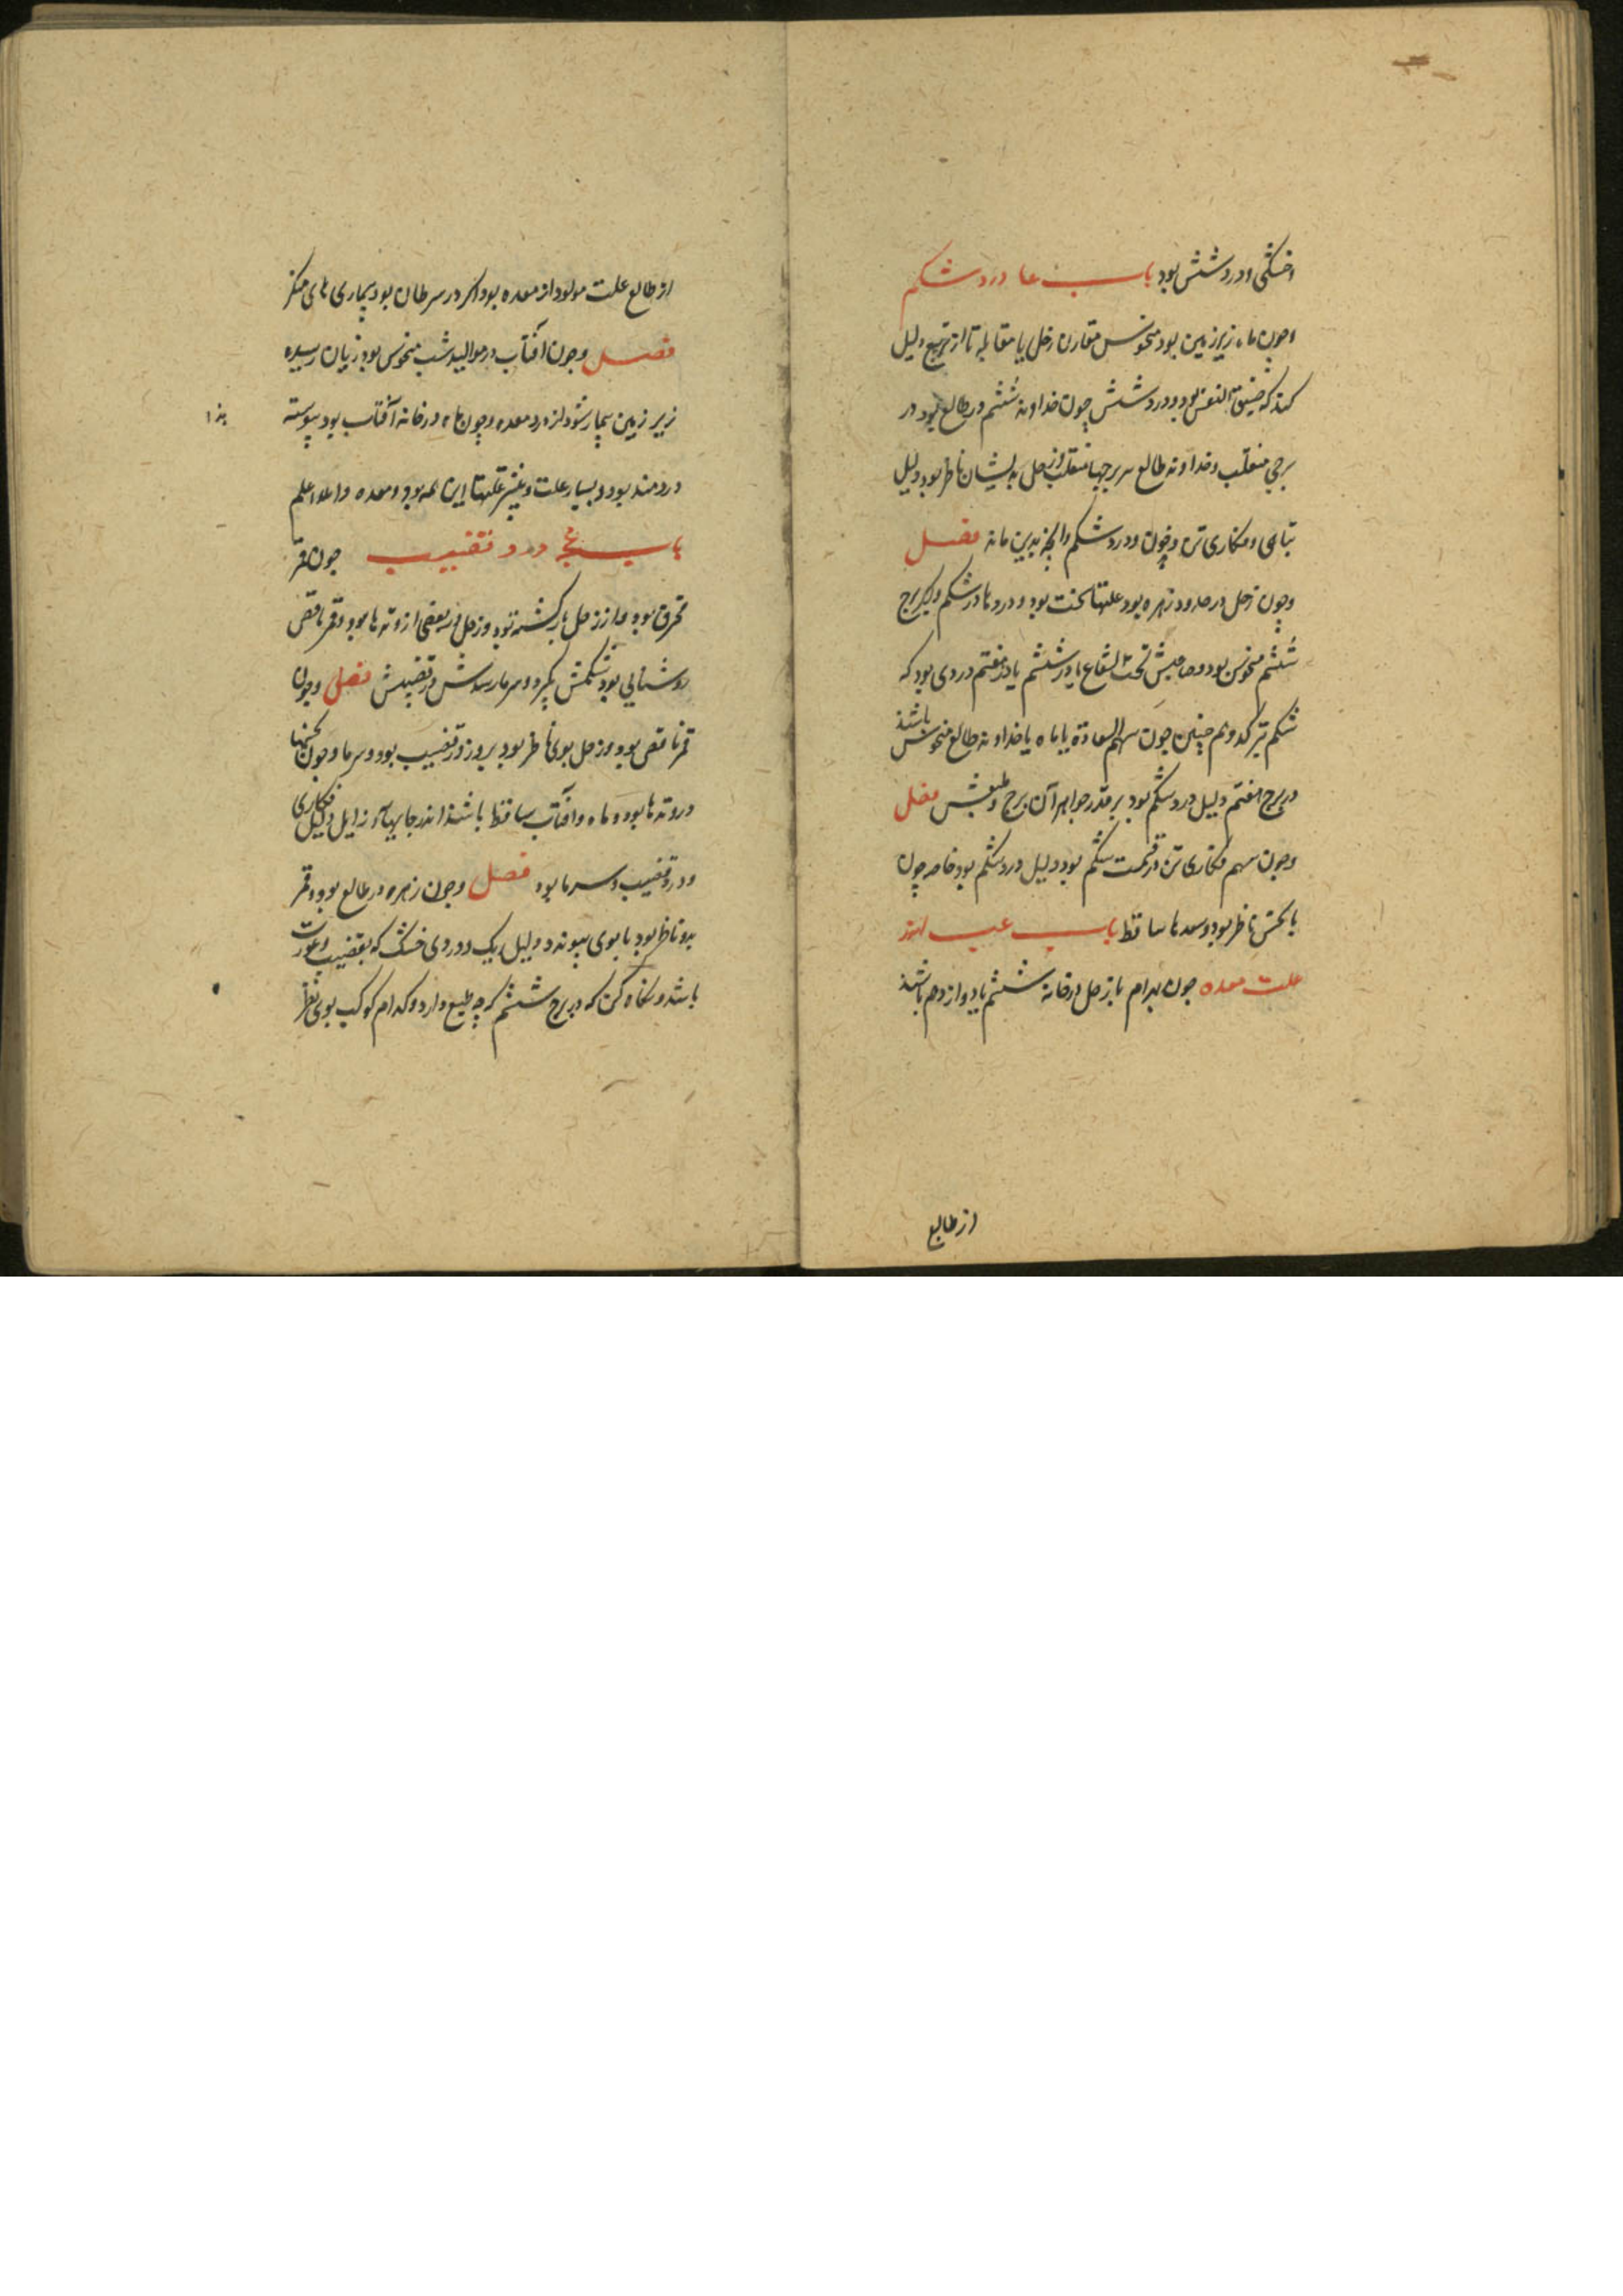 وخشکی و درد شش بود باب عا در درد شکم
وچون ماه زیر زمین بود منحوس مقارن زحل یا مقابله تا از تربیع دلیل
کند که ضیق النفس بود و درد شش چون خداوند ششم در طالع بود در
برجی منقلب و خداوند طالع ببرجها منقلب و زحل بدیشان ناظر بود دلیل
تباهی و فکاری تن و خون و درد شکم و آنچه بدین ماند فصل
وچون زحل در حدود زهره بود علتها سخت بود و دردها در شکم و کر برج
ششم منحوس بود و صاحبش تحت الشعاع یا در ششم یا در هفتم دردی بود که
شکم بترکد و هم چنین چون سهم السعادة یا ماه یا خداوند طالع منحوس باشند
در برج هفتم دلیل درد شکم بود بر قدر جواهر آن برج و طبعش فصل
وچون سهم فکاری تن در قسمت شکم بود دلیل درد شکم بود خاصه چون
با نحس ناظر بود و سعدها ساقط باب عب اندر
علت معده چون بهرام با زحل در خانه ششم یا دوازدهم باشند
از طالع
از طالع علت مولود از معده بود اکر در سرطان بود بیماری های منکر
فصل وچون آفتاب در موالید شب منحوس بود زیان رسیده
زیر زمین بیمار شود از درد معده وچون ماه در خانه آفتاب بود پیوسته
دردمند بود و بسیار علت و بیشتر علتها این همه بود و معده والله اعلم
باب عج درد قضیب چون قمر
محترق بود و از زحل بازکشته بود و زحل در بعضی از وتدها بود و قمر ناقص
روشنایی بود شکمش بکیرد و سرما رسدش در قضیبش فصل وچون
قمر ناقص بود و زحل بوی ناظر بود بروز درد قضیب بود و سرما وچون نحسها
در وتدها بود و ماه و آفتاب ساقط باشند اندر جایهاء زایل دلیل فکاری
و درد قضیب و سرما بود فصل وچون زهره در طالع بود و قمر
بدو ناظر بود یا بوی پیوندد دلیل یک دو دردی خشک که بقضیب و عورت
باشد و نکاه کن که در برج ششم کرچه طبع دارد و کدام کوکب بوی نظر